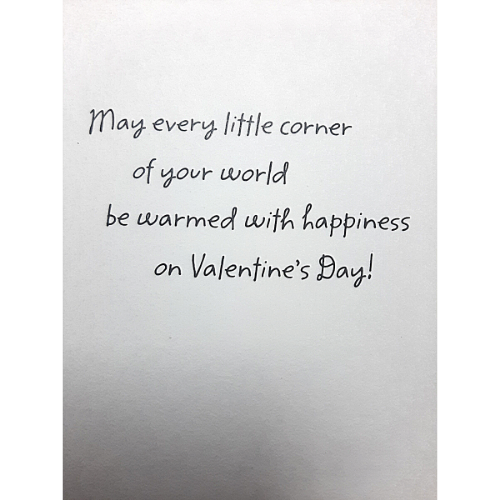 May every little corner
of your world
be warmed with happiness
on Valentine's Day!